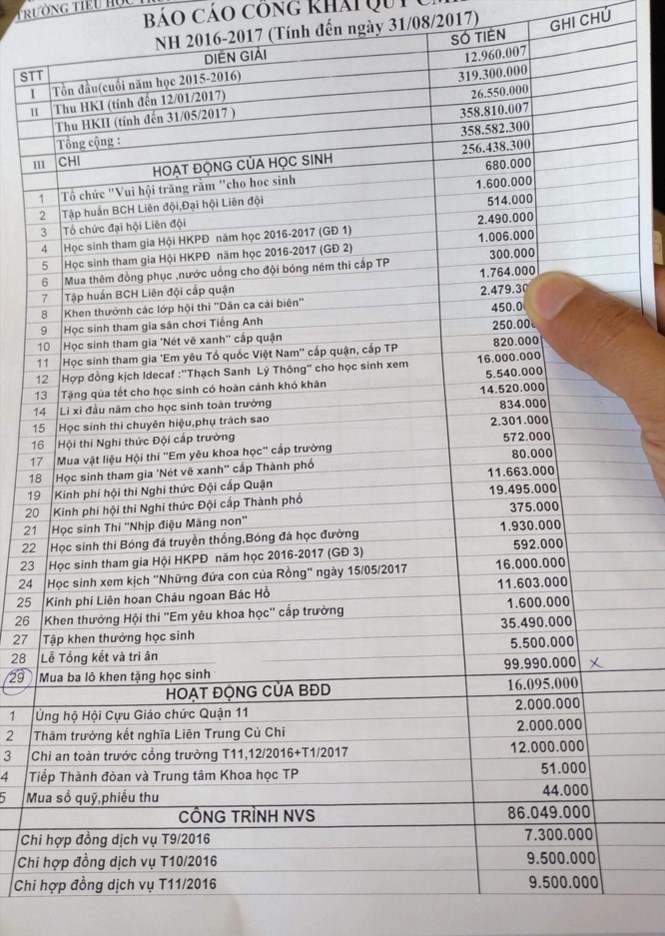 TRƯỜNG TIỂU HỌC
BÁO CÁO CÔNG KHAI QUỸ
NH 2016-2017 (Tính đến ngày 31/08/2017)
STT DIỄN GIẢI SỐ TIỀN GHI CHÚ
I Tồn đầu(cuối năm học 2015-2016) 12.960.007
II Thu HKI (tính đến 12/01/2017) 319.300.000
Thu HKII (tính đến 31/05/2017 ) 26.550.000
Tổng cộng : 358.810.007
III CHI 358.582.300
HOẠT ĐỘNG CỦA HỌC SINH 256.438.300
1 Tổ chức "Vui hội trăng rằm "cho hoc sinh 680.000
2 Tập huấn BCH Liên đội,Đại hội Liên đội 1.600.000
3 Tổ chức đại hội Liên đội 514.000
4 Học sinh tham gia Hội HKPĐ năm học 2016-2017 (GĐ 1) 2.490.000
5 Học sinh tham gia Hội HKPĐ năm học 2016-2017 (GĐ 2) 1.006.000
6 Mua thêm đồng phục ,nước uống cho đội bóng ném thi cấp TP 300.000
7 Tập huấn BCH Liên đội cấp quận 1.764.000
8 Khen thưởnh các lớp hội thi "Dân ca cải biên" 2.479.30
9 Học sinh tham gia sân chơi Tiếng Anh 450.00
10 Học sinh tham gia 'Nét vẽ xanh" cấp quận 250.00
11 Học sinh tham gia 'Em yêu Tổ quốc Việt Nam" cấp quận, cấp TP 820.000
12 Hợp đồng kịch Idecaf :"Thạch Sanh Lý Thông" cho học sinh xem 16.000.000
13 Tặng qùa tết cho học sinh có hoàn cảnh khó khăn 5.540.000
14 Lì xì đầu năm cho học sinh toàn trường 14.520.000
15 Học sinh thi chuyên hiệu,phụ trách sao 834.000
16 Hội thi Nghi thức Đội cấp trường 2.301.000
17 Mua vật liệu Hội thi "Em yêu khoa học" cấp trường 572.000
18 Học sinh tham gia 'Nét vẽ xanh" cấp Thành phố 80.000
19 Kinh phí hội thi Nghi thức Đội cấp Quận 11.663.000
20 Kinh phí hội thi Nghi thức Đội cấp Thành phố 19.495.000
21 Học sinh Thi "Nhịp điệu Măng non" 375.000
22 Học sinh thi Bóng đá truyền thống,Bóng đá học đường 1.930.000
23 Học sinh tham gia Hội HKPĐ năm học 2016-2017 (GĐ 3) 592.000
24 Học sinh xem kịch "Những đứa con của Rồng" ngày 15/05/2017 16.000.000
25 Kinh phí Liên hoan Cháu ngoan Bác Hồ 11.603.000
26 Khen thưởng Hội thi "Em yêu khoa học" cấp trường 1.600.000
27 Tập khen thưởng học sinh 35.490.000
28 Lễ Tổng kết và tri ân 5.500.000
29 Mua ba lô khen tặng học sinh 99.990.000 x
HOẠT ĐỘNG CỦA BĐD 16.095.000
1 Ủng hộ Hội Cựu Giáo chức Quận 11 2.000.000
2 Thăm trường kết nghĩa Liên Trung Củ Chi 2.000.000
3 Chi an toàn trước cổng trường T11,12/2016+T1/2017 12.000.000
4 Tiếp Thành đoàn và Trung tâm Khoa học TP 51.000
5 Mua sổ quỹ,phiếu thu 44.000
CÔNG TRÌNH NVS 86.049.000
Chi hợp đồng dịch vụ T9/2016 7.300.000
Chi hợp đồng dịch vụ T10/2016 9.500.000
Chi hợp đồng dịch vụ T11/2016 9.500.000